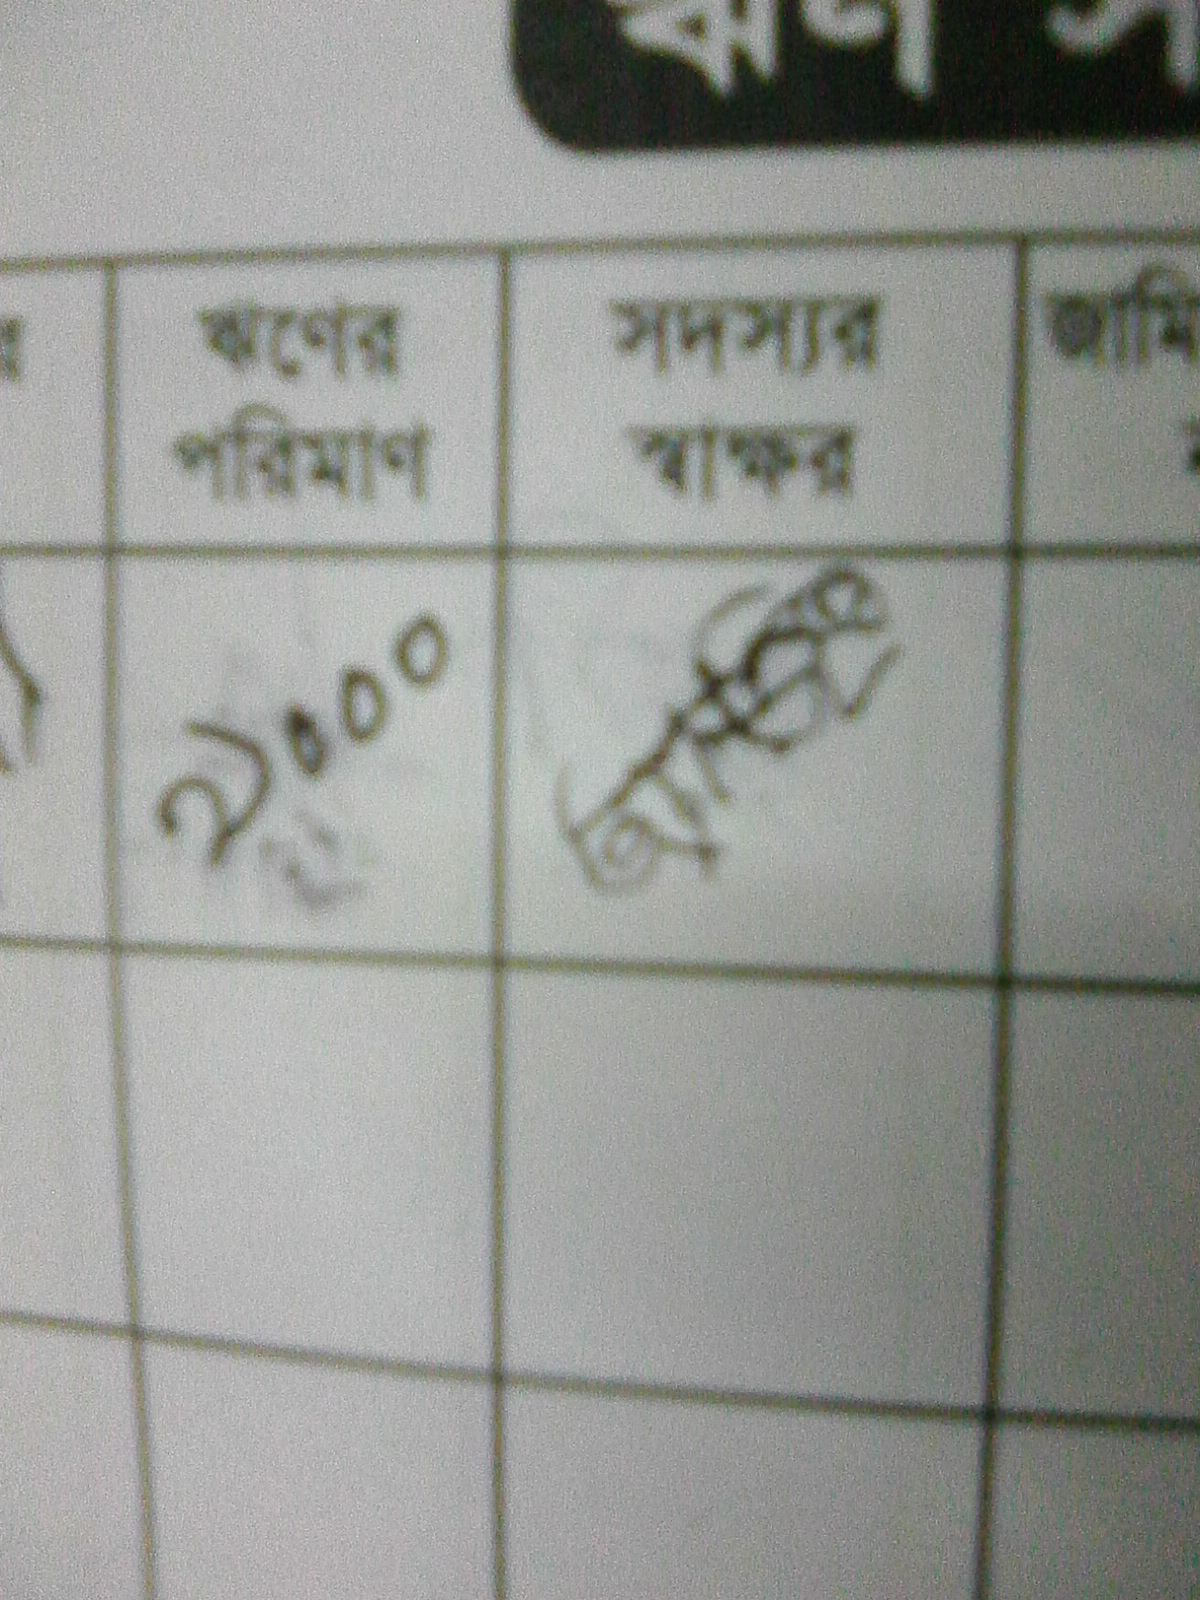 ঋণ স
ঋণের পরিমাণ
সদস্যর স্বাক্ষর
জামি
২০০০